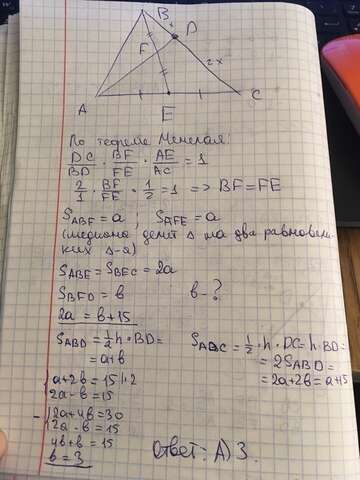 B
x
D
F
2x
A
E
C
По теореме Менелая:
DC/BD · BF/FE · AE/AC = 1
2/1 · BF/FE · 1/2 = 1 => BF = FE
S_ABF = a ; S_AFE = a
(медиана делит Δ на два равновели-
ких Δ-а)
S_ABE = S_BEC = 2a
S_BFD = b b - ?
2a = b + 15
S_ABD = 1/2 h · BD =
= a+b
S_ADC = 1/2 · h · DC = h · BD =
= 2S_ABD =
= 2a+2b = a+15
a+2b = 15 |·2
2a - b = 15
- 2a+4b = 30
2a - b = 15
4b+b = 15
b = 3
Ответ: А) 3.